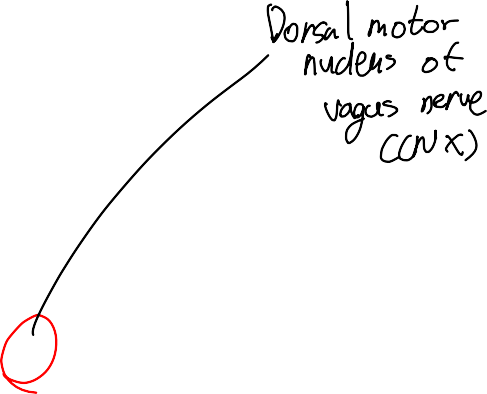 Dorsal motor
nucleus of
vagus nerve
(CN X)